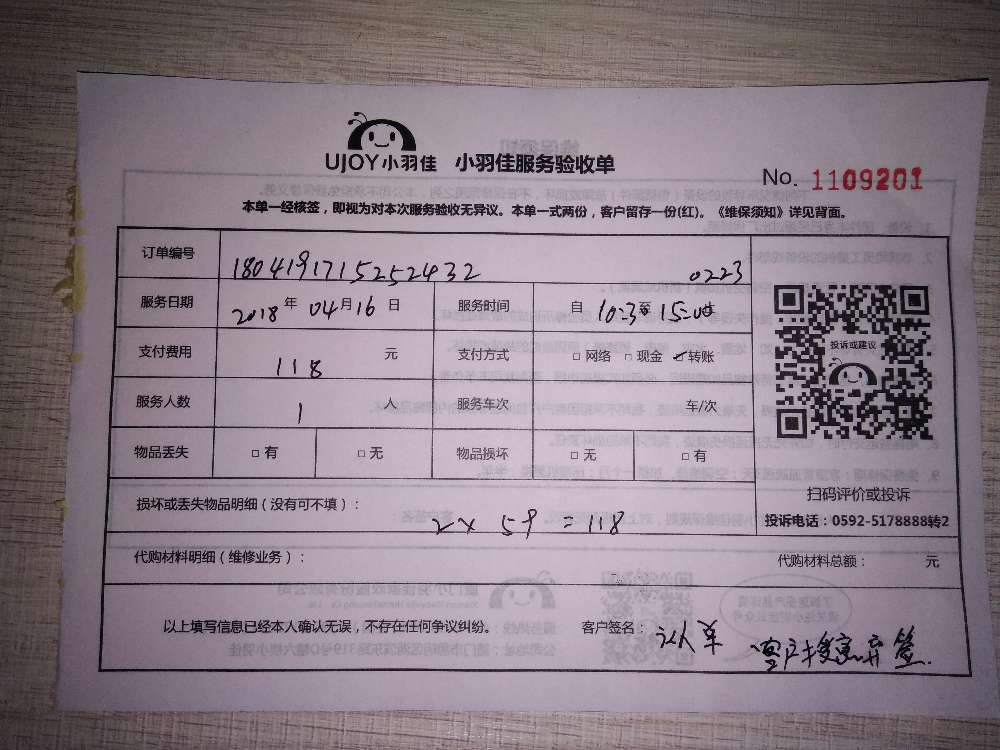 UJOY小羽佳 小羽佳服务验收单
No. 1109201
本单一经核签，即视为对本次服务验收无异议。本单一式两份，客户留存一份(红)。《维保须知》详见背面。
订单编号 1804191715252432 0223
服务日期 2018年04月16日 服务时间 自 10:23至15:00时
支付费用 118 元 支付方式 □网络 □现金 ✓转账
服务人数 1 人 服务车次 车/次
物品丢失 □有 □无 物品损坏 □无 □有
投诉或建议
扫码评价或投诉
投诉电话：0592-5178888转2
损坏或丢失物品明细（没有可不填）：
2×59=118
代购材料明细（维修业务）： 代购材料总额： 元
以上填写信息已经本人确认无误，不存在任何争议纠纷。 客户签名：